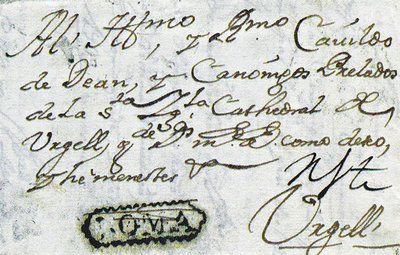 Al Illmo, y Rmo Cavildo
de Dean, y Canonigos Prelados
de la Sta Iglª Cathedral de
Urgell, q Ds m. a. como deseo,
y he menester
Urgell